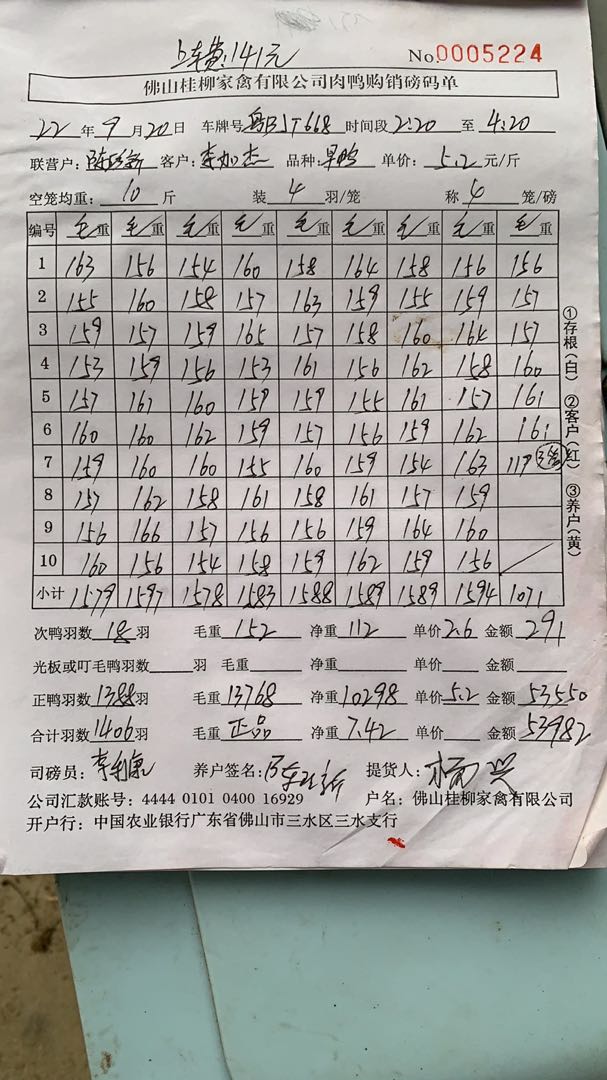 上车费:141元
No.0005224
佛山桂柳家禽有限公司肉鸭购销磅码单
22 年 9 月 20 日 车牌号 粤BJT668 时间段 2:20 至 4:20
联营户: 客户: 李加杰 品种: 旱鸭 单价: 5.2 元/斤
空笼均重: 10 斤 装 4 羽/笼 称 4 笼/磅
编号 毛重 毛重 毛重 毛重 毛重 毛重 毛重 毛重 毛重
1 163 156 154 160 158 164 158 156 156
2 155 160 158 157 163 159 155 159 157
3 159 157 159 165 157 158 160 164 157
4 153 159 156 153 161 156 162 158 160
5 157 161 160 159 159 155 161 157 161
6 160 160 162 159 157 156 159 162 161
7 159 160 160 155 160 159 154 163 119 3笼
8 157 162 158 161 158 161 157 159
9 156 166 157 156 156 159 164 160
10 160 156 154 158 159 162 159 156
小计 1579 1597 1578 1583 1588 1589 1589 1594 1071
次鸭羽数 18 羽 毛重 152 净重 112 单价 2.6 金额 291
光板或叮毛鸭羽数 羽 毛重 净重 单价 金额
正鸭羽数 1388 羽 毛重 13768 净重 10298 单价 5.2 金额 53550
合计羽数 1406 羽 毛重 正品 净重 7.42 单价 金额 53982
司磅员: 养户签名: 提货人: 杨兴
公司汇款账号: 4444 0101 0400 16929 户名: 佛山桂柳家禽有限公司
开户行: 中国农业银行广东省佛山市三水区三水支行
①存根(白) ②客户(红) ③养户(黄)